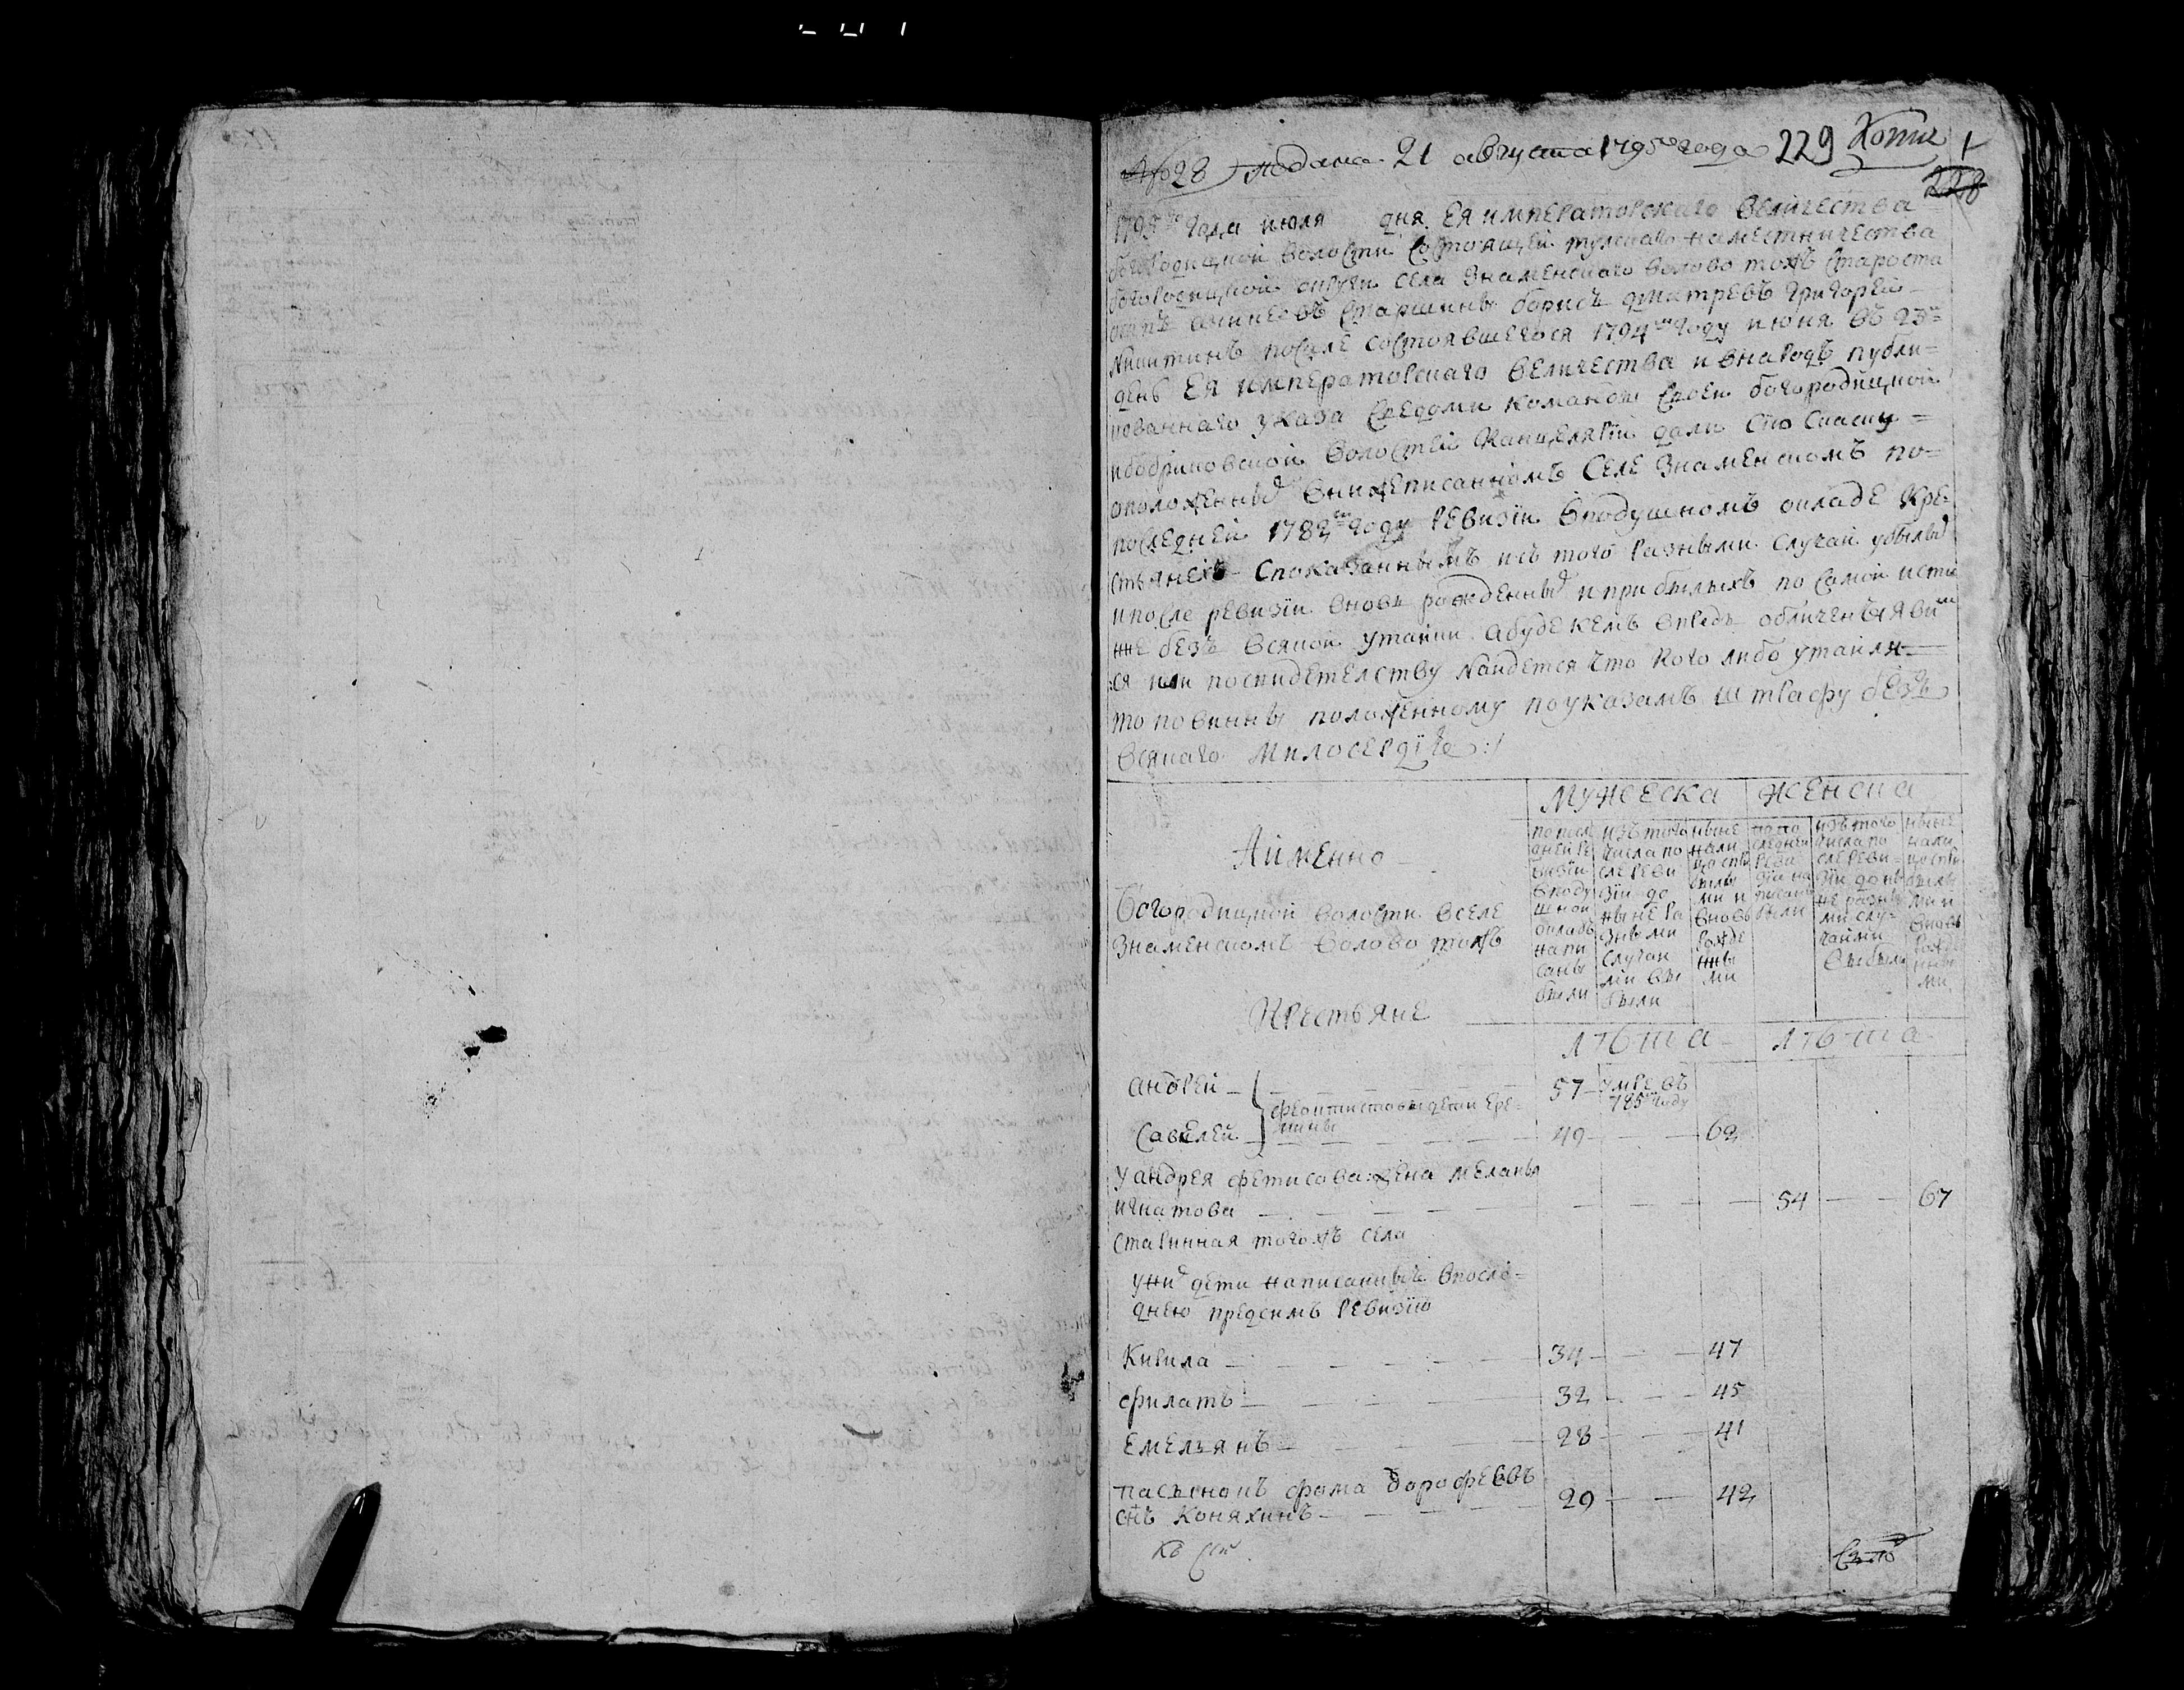 № 28 подана 21 августа 1795го года 229 Копия 1
228
1795го года июля дня Ея императорскаго величества
богородицкой волости состоящей тулскаго наместничества
богородицкой округи села Знаменскаго волово тожъ староста
старшины борисъ дмитревъ григорей
никитинъ после состоявшегося 1794го году июня въ 23
день Ея императорскаго величества и внародъ публи=
кованнаго указа команды своей богородицкой
ибобриковской волостей канцелярїи дали сию скаску=
ополо женныхъ внижеписанномъ Селе Знаменскомъ по=
последней 1782го году ревизїи вподушномъ окладе кре=
стьянехъ спока заннымъ исъ того разными случаи убылыхъ
ипосле ревизїи вновь рожденныхъ и прибылыхъ по самой исти
нне безъ всякой утайки абуде кемъ впредь обличены яви
ся или посвидетелству найдется что кого либо утаили
то повинны положенному поуказамъ штрафу безъ
всякаго милосердїя :/
Аимянно
Мужеска Женска
по последней ре визїи вподу шной окладъ напи саны были
изъ того числа по сле реви зїи до ныне ра зными случаи ми вы были
ныне нали цо спри былы ми и вновь рожде нны ми
по по следней реви зїи на писаны были
изъ того числа по сле реви= зїи до ны не разны ми слу= чайми выбыли
ныне нали цо спри былы ми и вновь рожде нны ми
Богородицкой волости вселе
Знаменскомъ волово тожъ
Крестьяне
лѣта лѣта
андрей 57 умре въ 785м году
феоктистовы дети Ере=
мины
Савелей 49 62
у андрея фетисова жена меланья
игнатова 54 67
старинная тогожъ села
уних дети написанныя впослѣ=
днею предсимъ ревизїю
Кирила 34 47
филатъ 32 45
Емельянъ 28 41
пасынокъ фома дорофеевъ
снъ Коняхинъ 29 42
къ сей